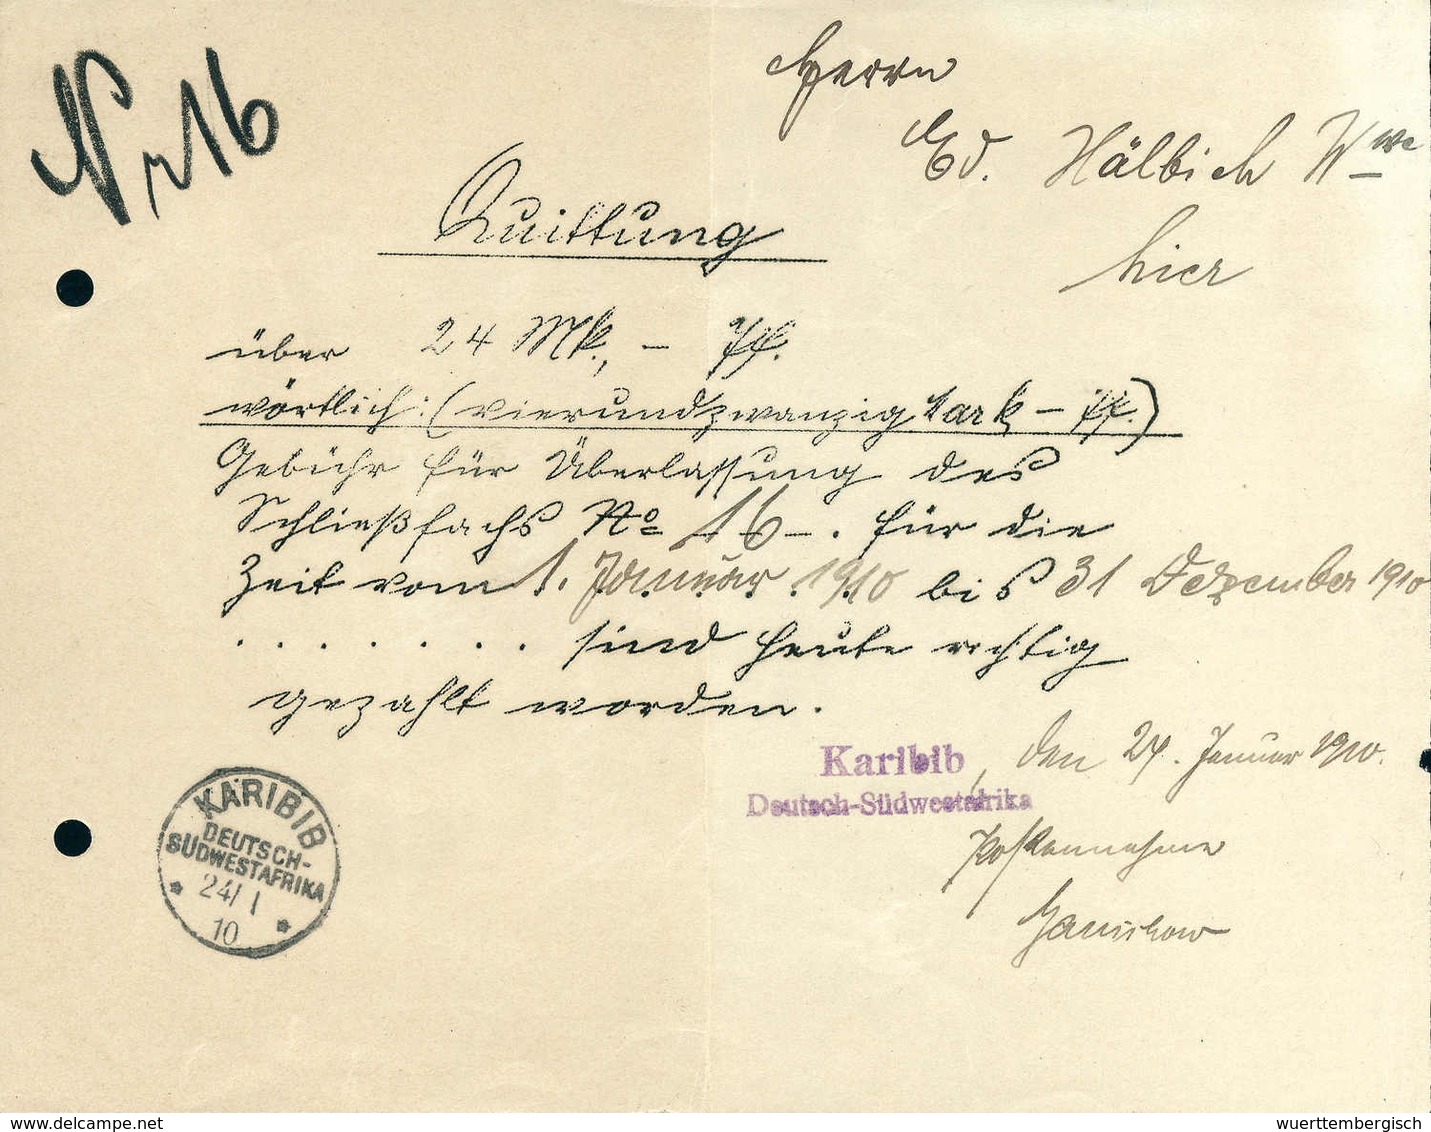 Nr 16
Herrn
Ed. Hälbich Wwe
hier
Quittung
über 24 Mk., – Pf.
wörtlich: (vierundzwanzig Mark – Pf.)
Gebühr für Überlassung des
Schließfachs No 16 –. für die
Zeit vom 1. Januar 1910 bis 31 Dezember 1910
. . . . . . . sind heute richtig
gezahlt worden.
Karibib, den 24. Januar 1910.
Deutsch-Südwestafrika
KARIBIB
DEUTSCH-
SÜDWESTAFRIKA
* 24/1 *
10
www.delcampe.net
wuerttembergisch